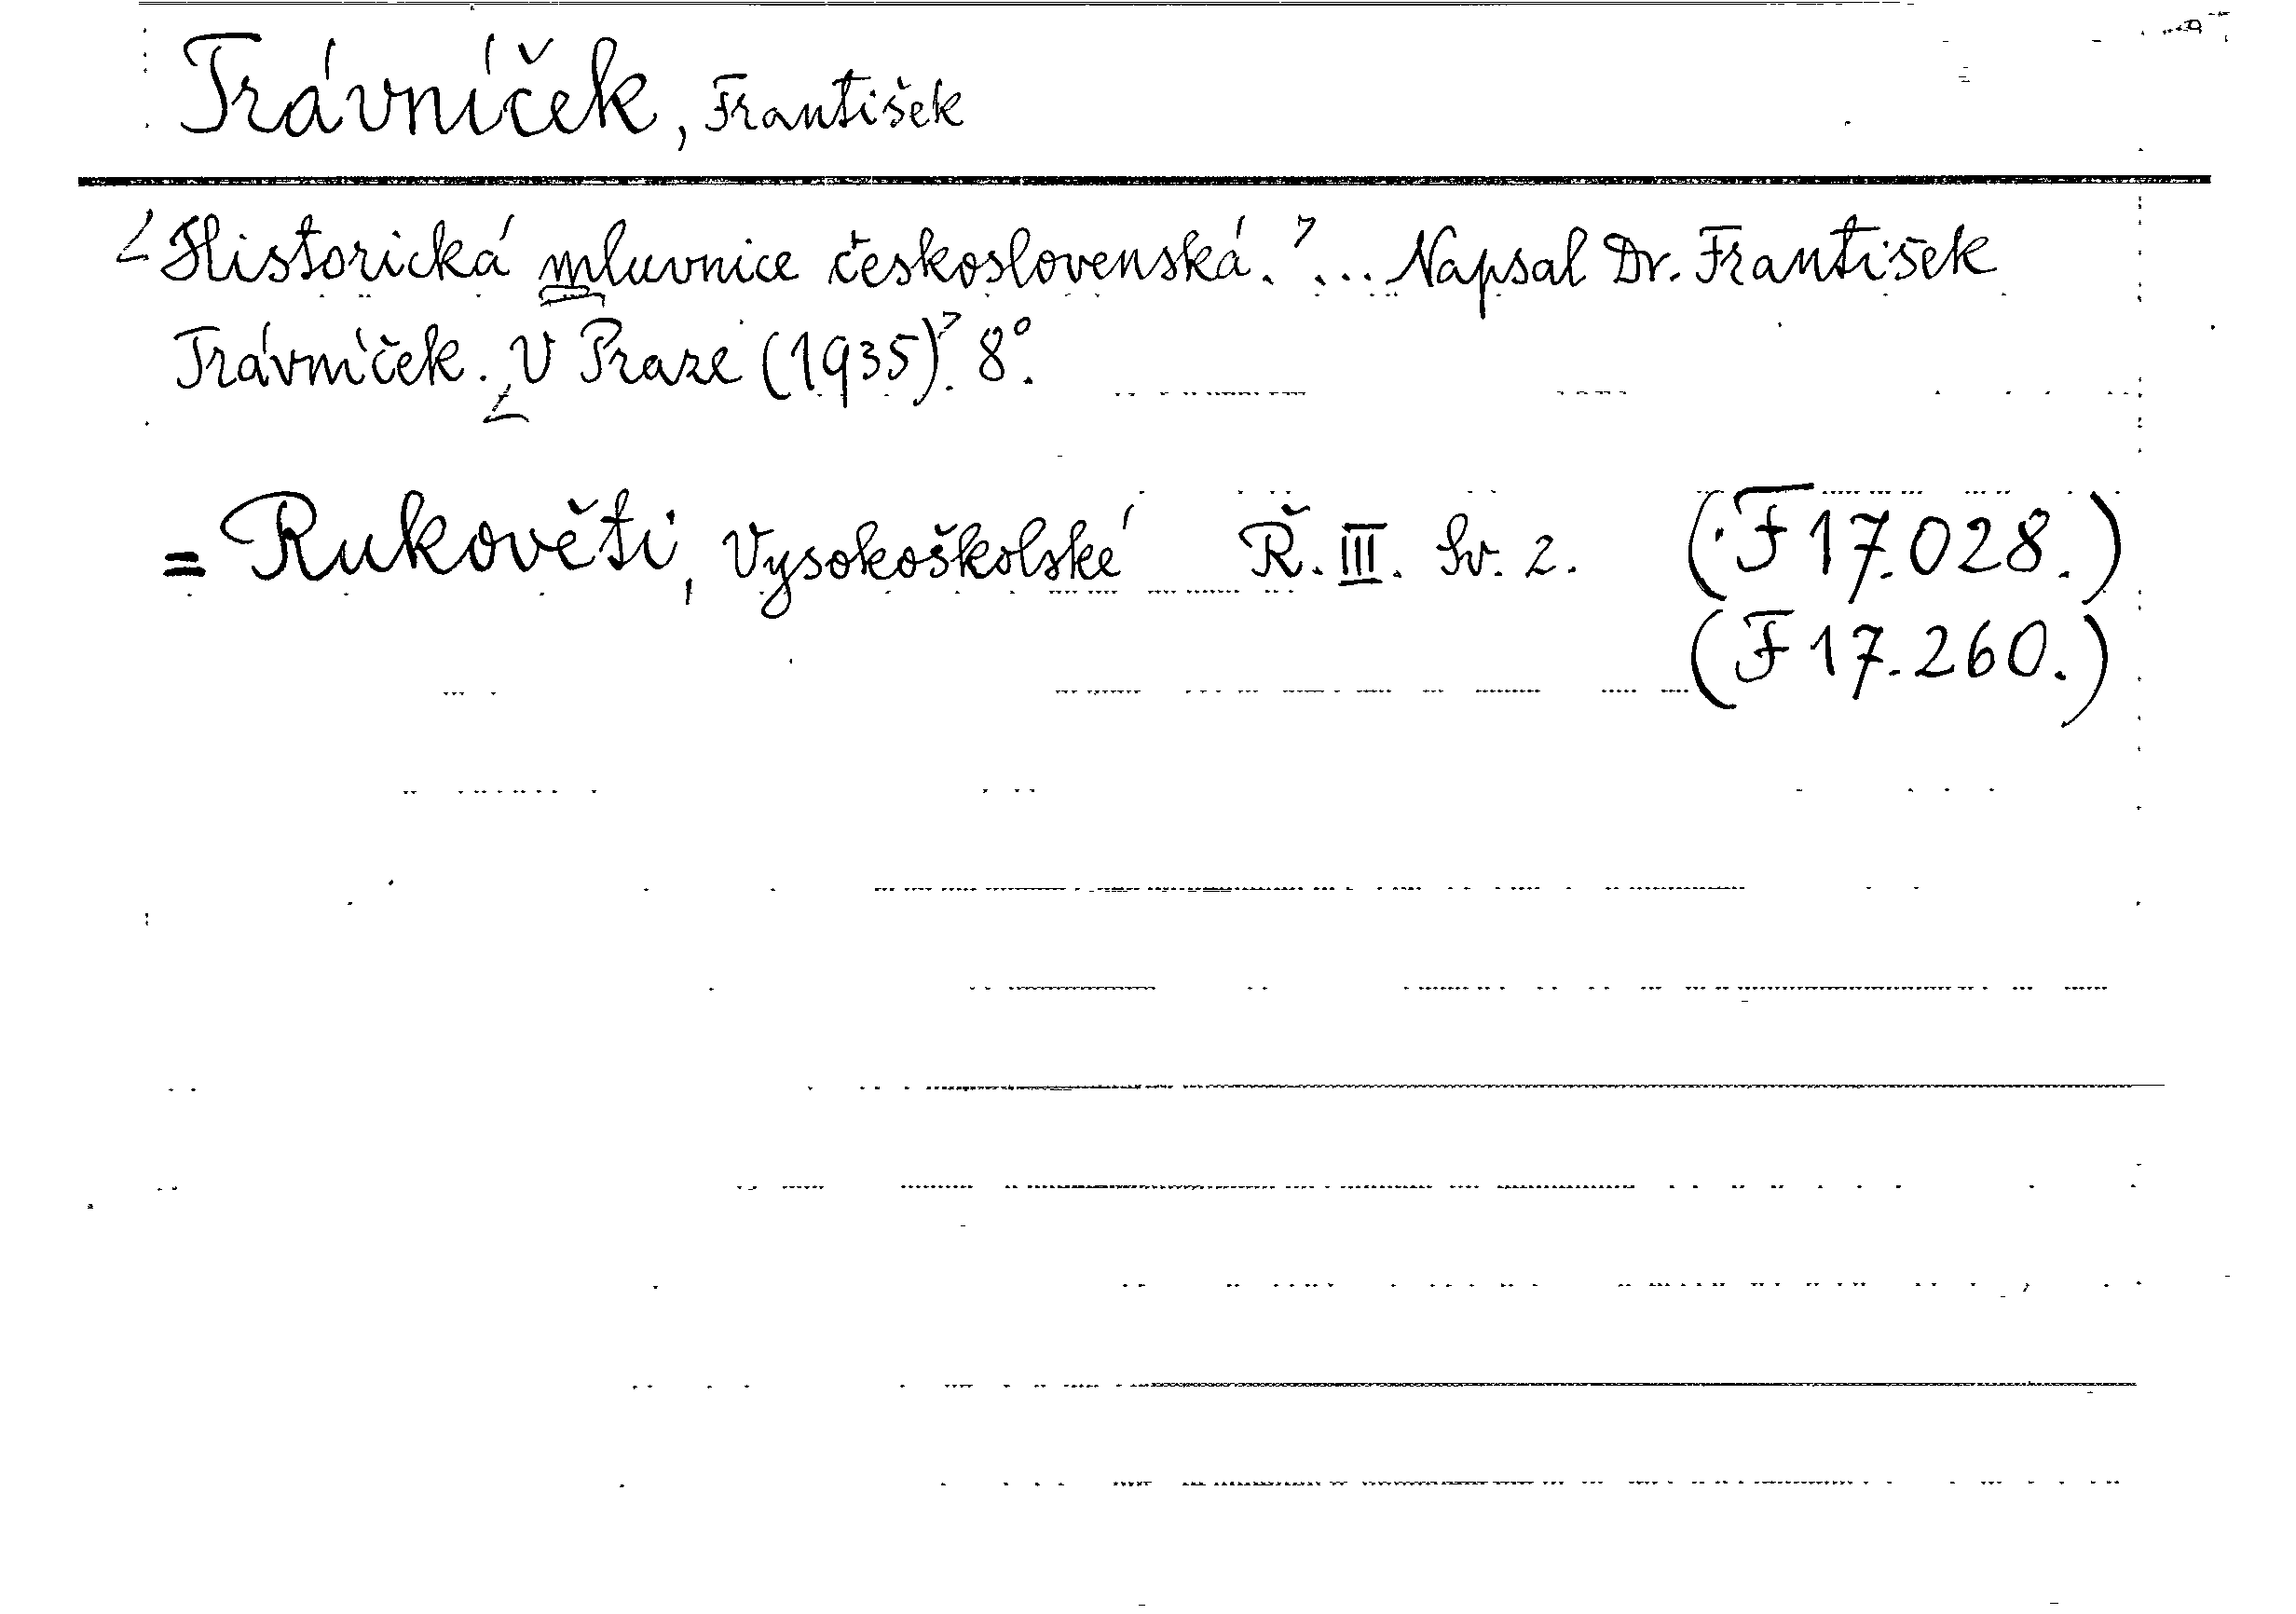 Trávníček, František
<Historická mluvnice československá.>... Napsal Dr. František
Trávníček. <V Praze (1935)>. 8°.
= Rukověti, Vysokoškolské Ř. III. Sv. 2. (F 17.028.)
(F 17.260.)